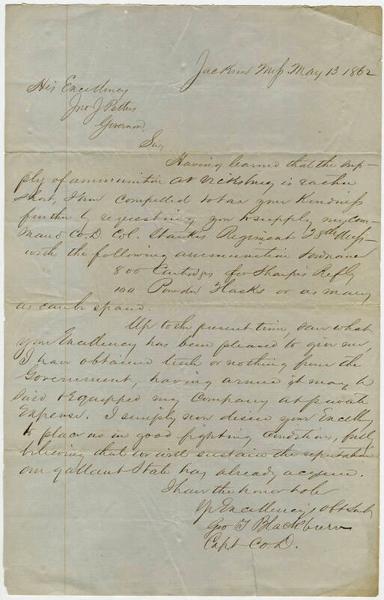 Jackson Miss May 13 1862
His Excellency
Jno J Pettus
Governor
Sir
Having learned that the sup-
ply of ammunition at Vicksburg is rather
short, I am compelled to tax your kindness
further by requesting you to supply my com-
mand Co. D Col. Starkes Regiment 28th Miss
with the following ammunition
800 Cartridges for Sharps Rifle
100 Powder Flasks or as many
as can be spared.
Up to the present time, save what
your Excellency has been pleased to give me,
I have obtained little or nothing from the
Government, having armed it may be
said & equipped my Company at private
Expense. I simply now desire your Excellency
to place us in good fighting condition, fully
believing that we will sustain the reputation
our gallant State has already acquired.
I have the honor to be
Yr Excellency's Obt Svt
Geo T Blackburn
Capt Co. D.